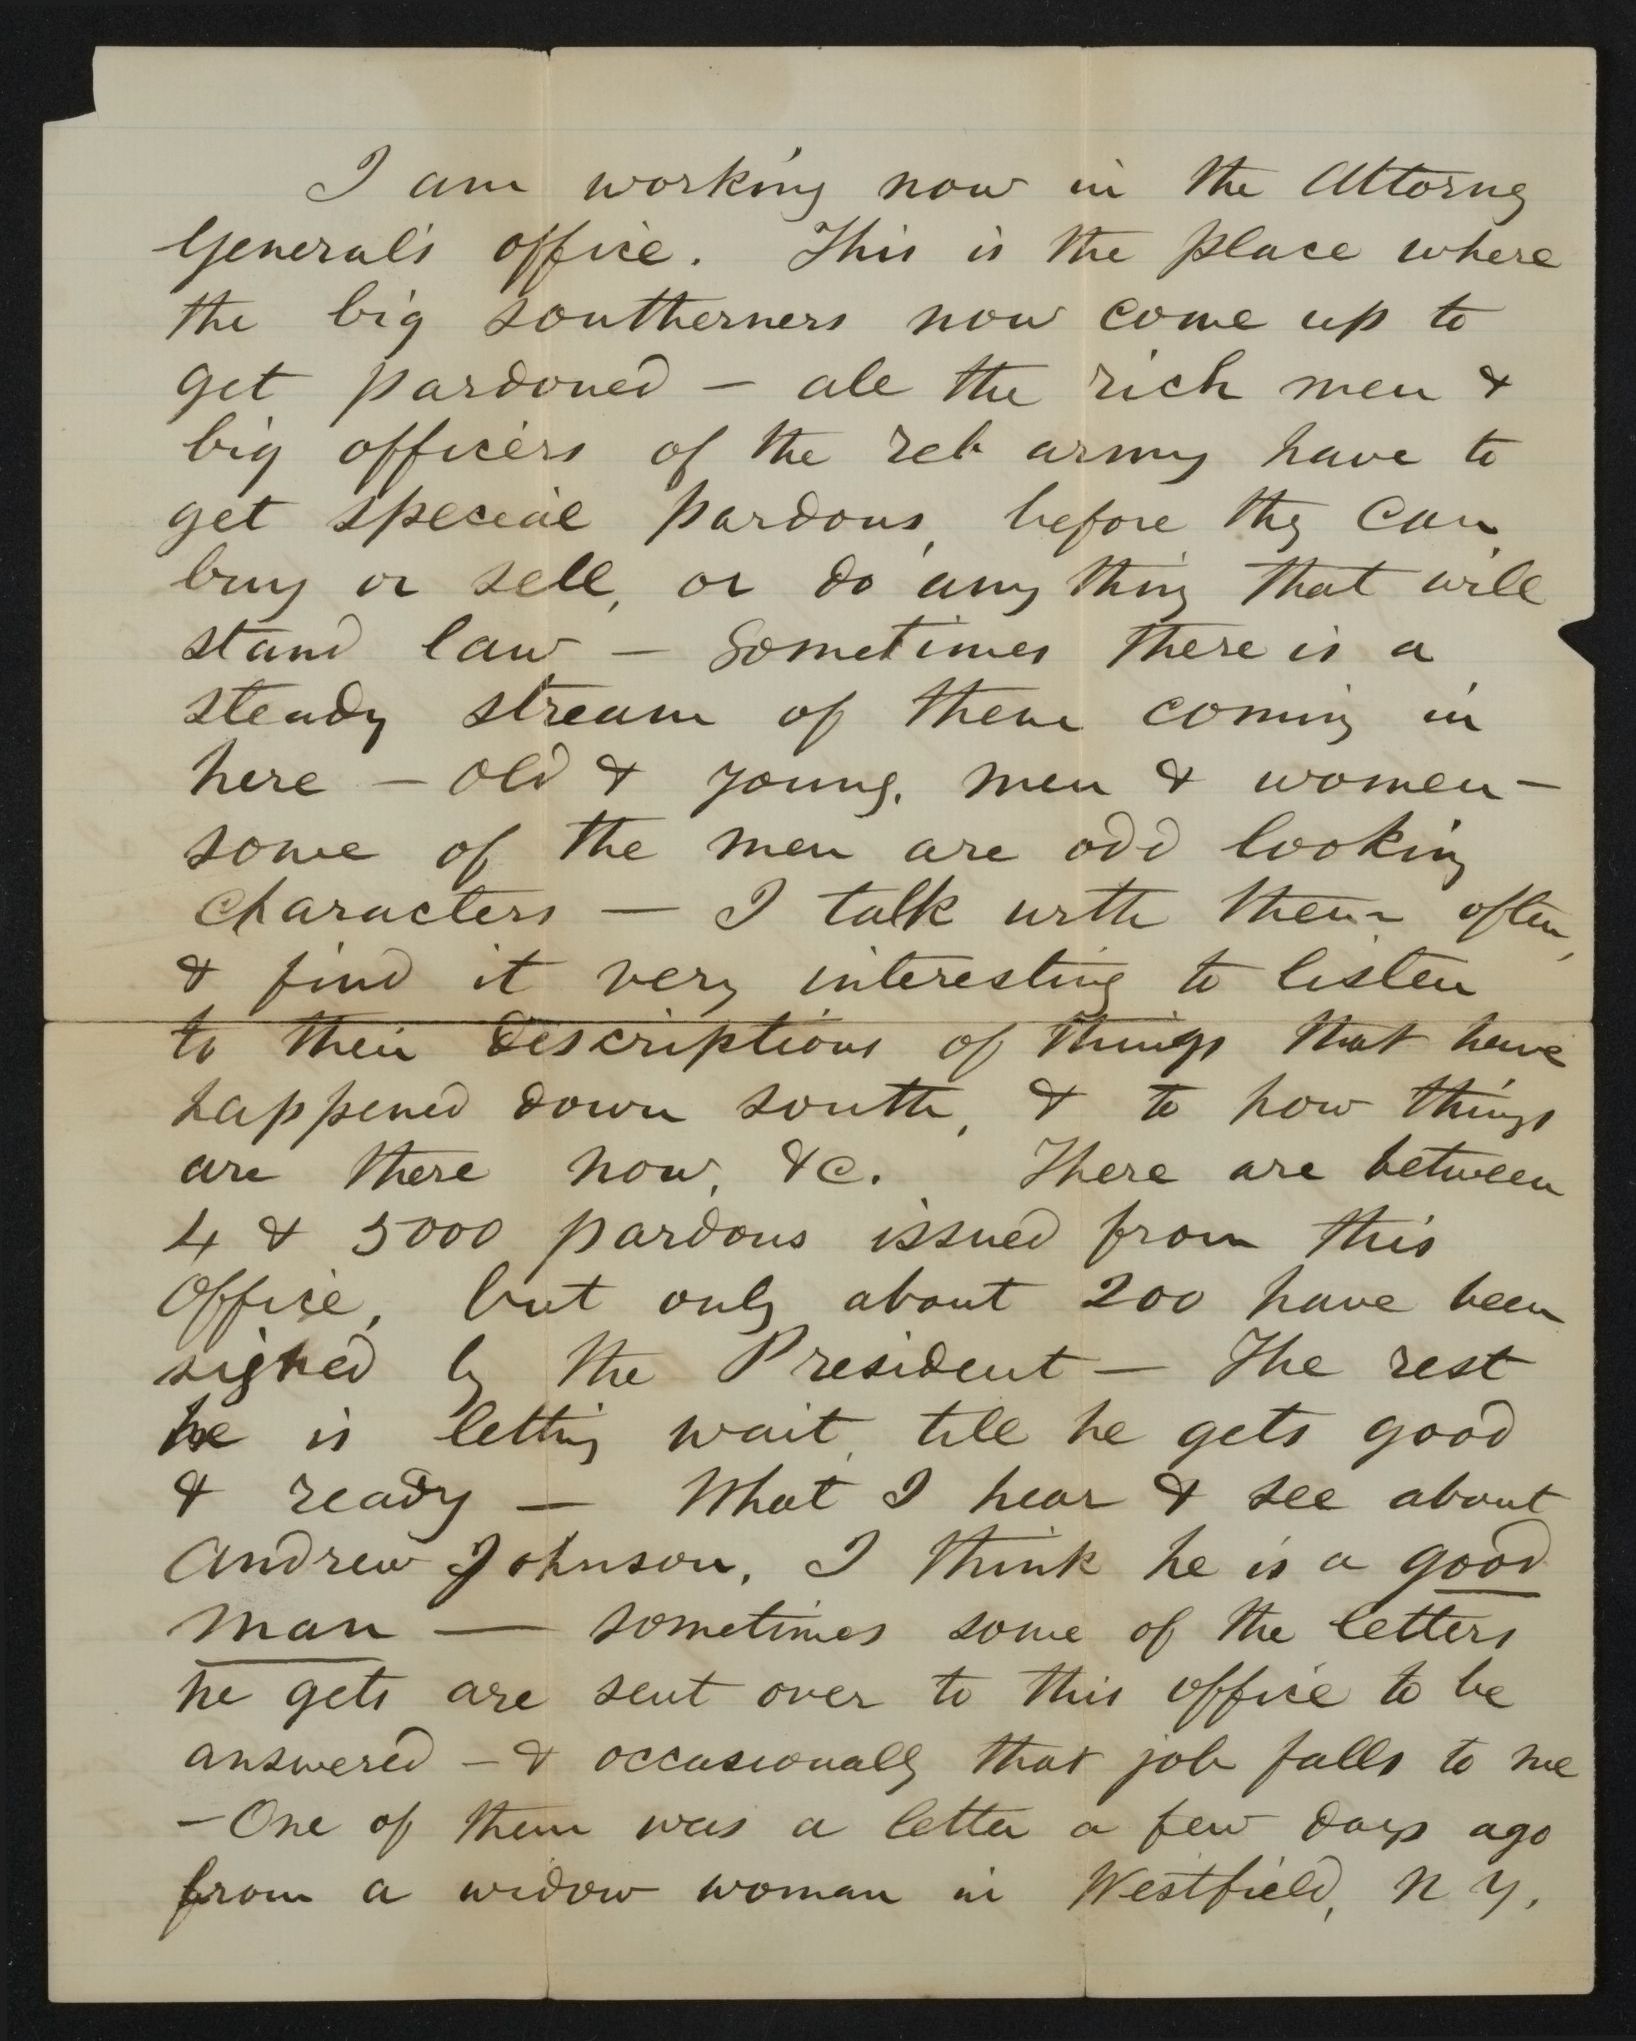 I am working now in the Attorney
General's office. This is the place where
the big southerners now come up to
get pardoned — all the rich men &
big officers of the reb army have to
get special pardons, before they can
buy or sell, or do any thing that will
stand law — Sometimes there is a
steady stream of them coming in
here — old & young, men & women —
some of the men are odd looking
characters — I talk with them often,
& find it very interesting to listen
to their descriptions of things that have
happened down south, & to how things
are there now, &c. There are between
4 & 5000 pardons issued from this
Office, but only about 200 have been
signed by the President — The rest
he is letting wait, till he gets good
& ready — What I hear & see about
Andrew Johnson, I think he is a good
man — sometimes some of the letters
he gets are sent over to this office to be
answered — & occasionally that job falls to me
— One of them was a letter a few days ago
from a widow woman in Westfield, N Y,